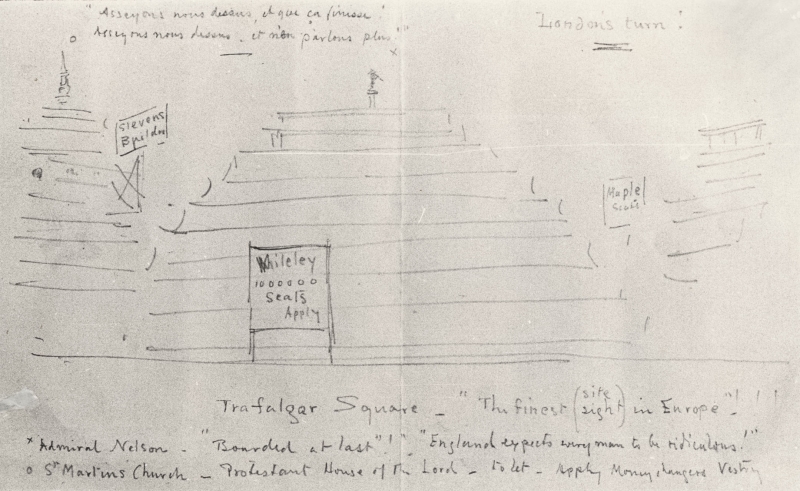 "Asseyons nous dessus, et que ça finisse!
Asseyons nous dessus, et n'en parlons plus!"
London's turn!
o
x
Stevens
Builders
Maple
Seats
Whileley
1000000
Seats
Apply
Trafalgar Square - "The finest (site sight) in Europe"!!!
x Admiral Nelson - "Boarded at last"! - "England expects every man to be ridiculous!"
o St Martins Church - Protestant House of the Lord - to let - Apply Moneychangers Vestry